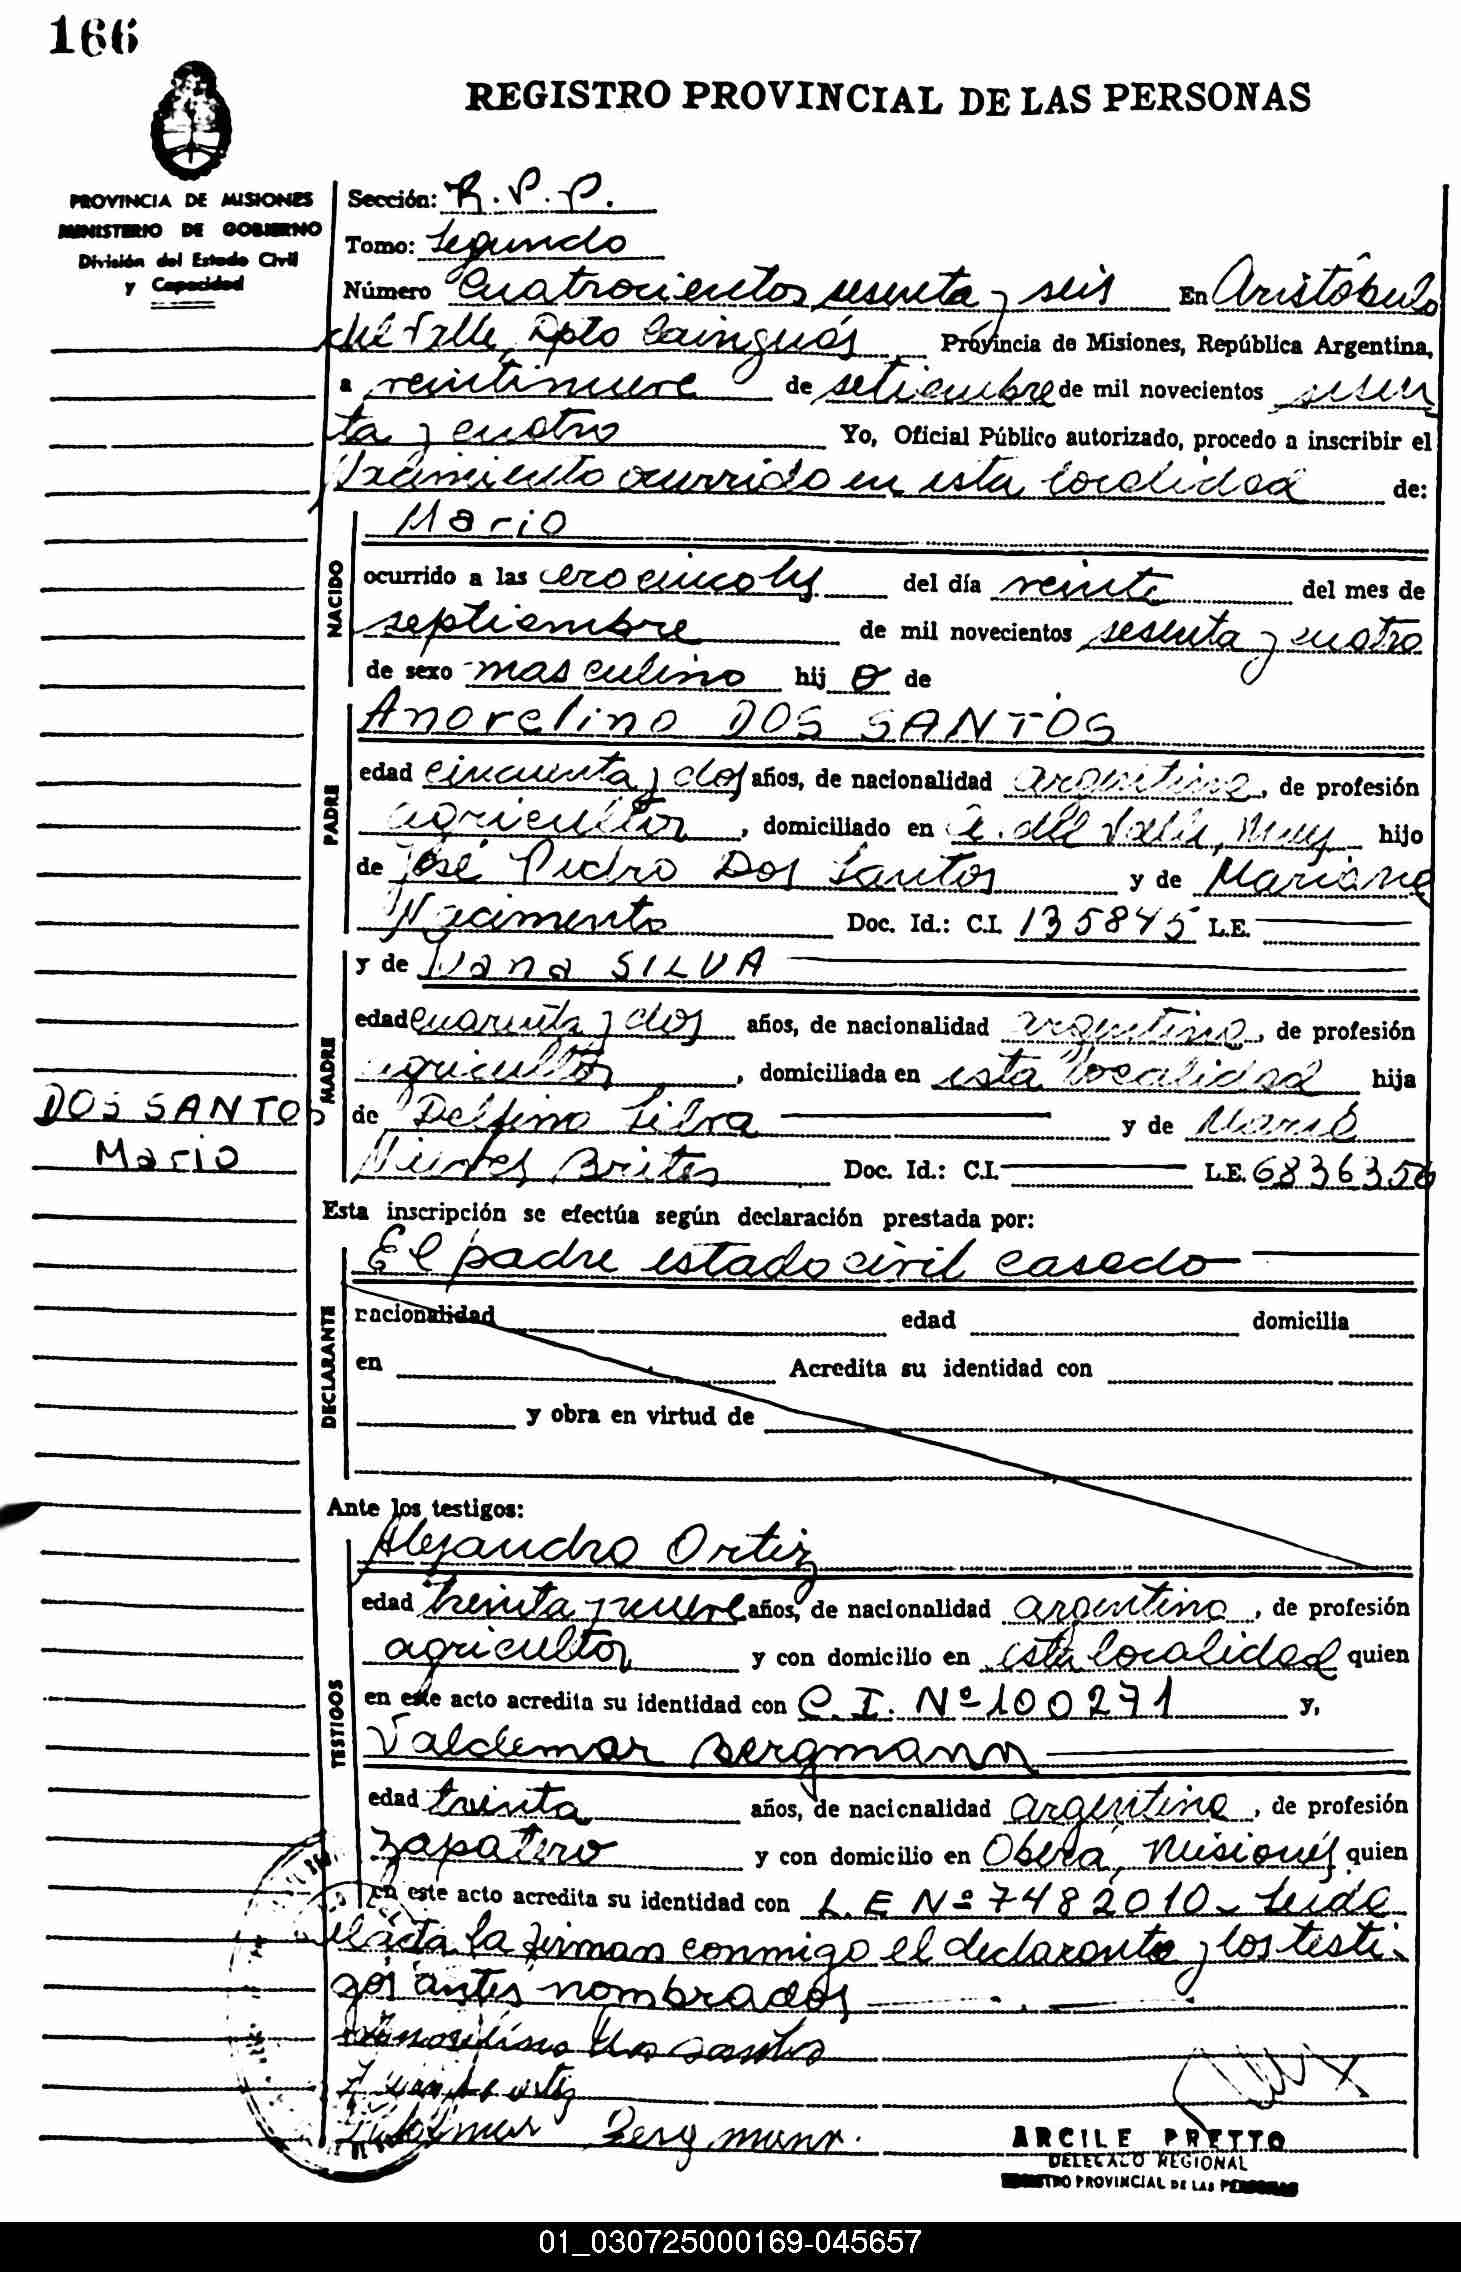 166
REGISTRO PROVINCIAL DE LAS PERSONAS
PROVINCIA DE MISIONES
MINISTERIO DE GOBIERNO
División del Estado Civil
y Capacidad
Sección: R.P.P.
Tomo: Segundo
Número Cuatrocientos sesenta y seis En Aristóbulo
del Valle, Dpto Cainguás Provincia de Misiones, República Argentina,
a veintinueve de setiembre de mil novecientos sesen
ta y cuatro Yo, Oficial Público autorizado, procedo a inscribir el
Nacimiento ocurrido en esta localidad de:
NACIDO
Mario
ocurrido a las cero cinco hs del día veinte del mes de
septiembre de mil novecientos sesenta y cuatro
de sexo masculino hij o de
PADRE
Anorelino DOS SANTOS
edad cincuenta y dos años, de nacionalidad argentina, de profesión
agricultor, domiciliado en A. del Valle, Mnes hijo
de José Pedro Dos Santos y de Mariana
Nacimento Doc. Id.: C.I. 135845 L.E.
MADRE
y de Nana SILVA
edad cuarenta y dos años, de nacionalidad argentina, de profesión
agricultor, domiciliada en esta localidad hija
de Delfino Silva y de María
Nunes Brites Doc. Id.: C.I. L.E. 6836356
DOS SANTOS
Mario
Esta inscripción se efectúa según declaración prestada por:
DECLARANTE
El padre estado civil casado
nacionalidad edad domicilia
en Acredita su identidad con
y obra en virtud de
Ante los testigos:
TESTIGOS
Alejandro Ortiz
edad treinta y nueve años, de nacionalidad argentino, de profesión
agricultor y con domicilio en esta localidad quien
en este acto acredita su identidad con C.I. Nº 100271 y,
Valdemar Bergmann
edad treinta años, de nacionalidad argentina, de profesión
zapatero y con domicilio en Oberá, Misiones quien
en este acto acredita su identidad con L.E Nº 7482010 - Leída
el acta la firman conmigo el declarante y los testi-
gos antes nombrados
Anorelino dos santos
Bergmann.
ARCILE PRETTO
DELEGADO REGIONAL
REGISTRO PROVINCIAL DE LAS PERSONAS
01_030725000169-045657